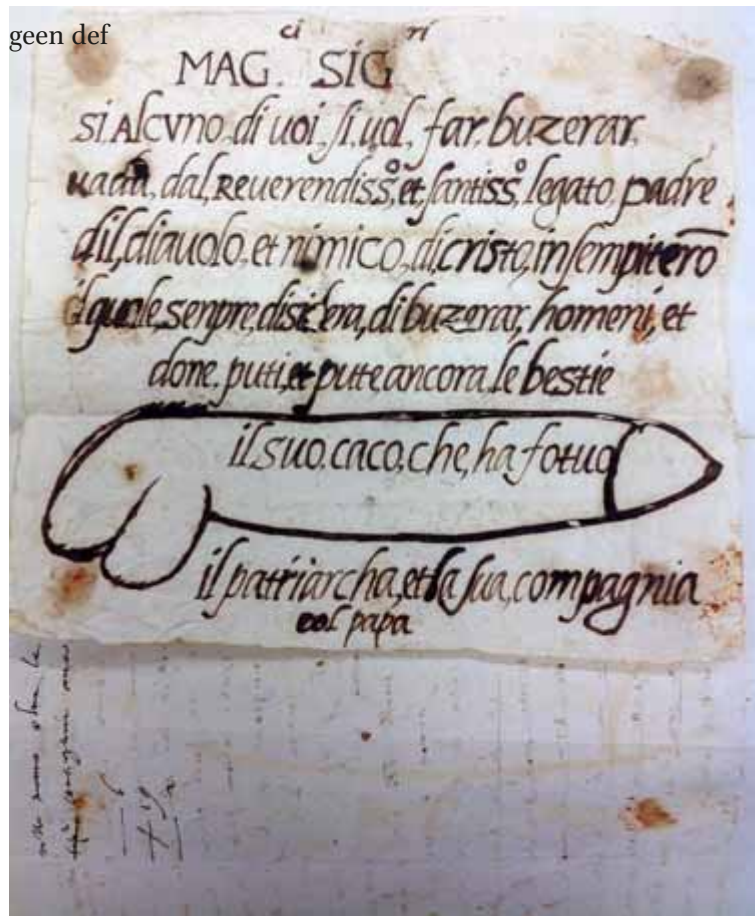 geen def
ci ri
MAG. SIG
SI.AlCVNO.di uoi,si,uol, far,buzerar,
uada, dal,Reuerendissº,et,santissº,legato,padre
dil,diauolo,et nimico,di,cristo,in,sempiterō
ilquale,senpre,disidera,di buzerar,homeni,et
done.puti,et pute,ancora,le bestie
il,suo.caco.che,ha fotuo
il patriarcha,et la sua,compagnia
col papa